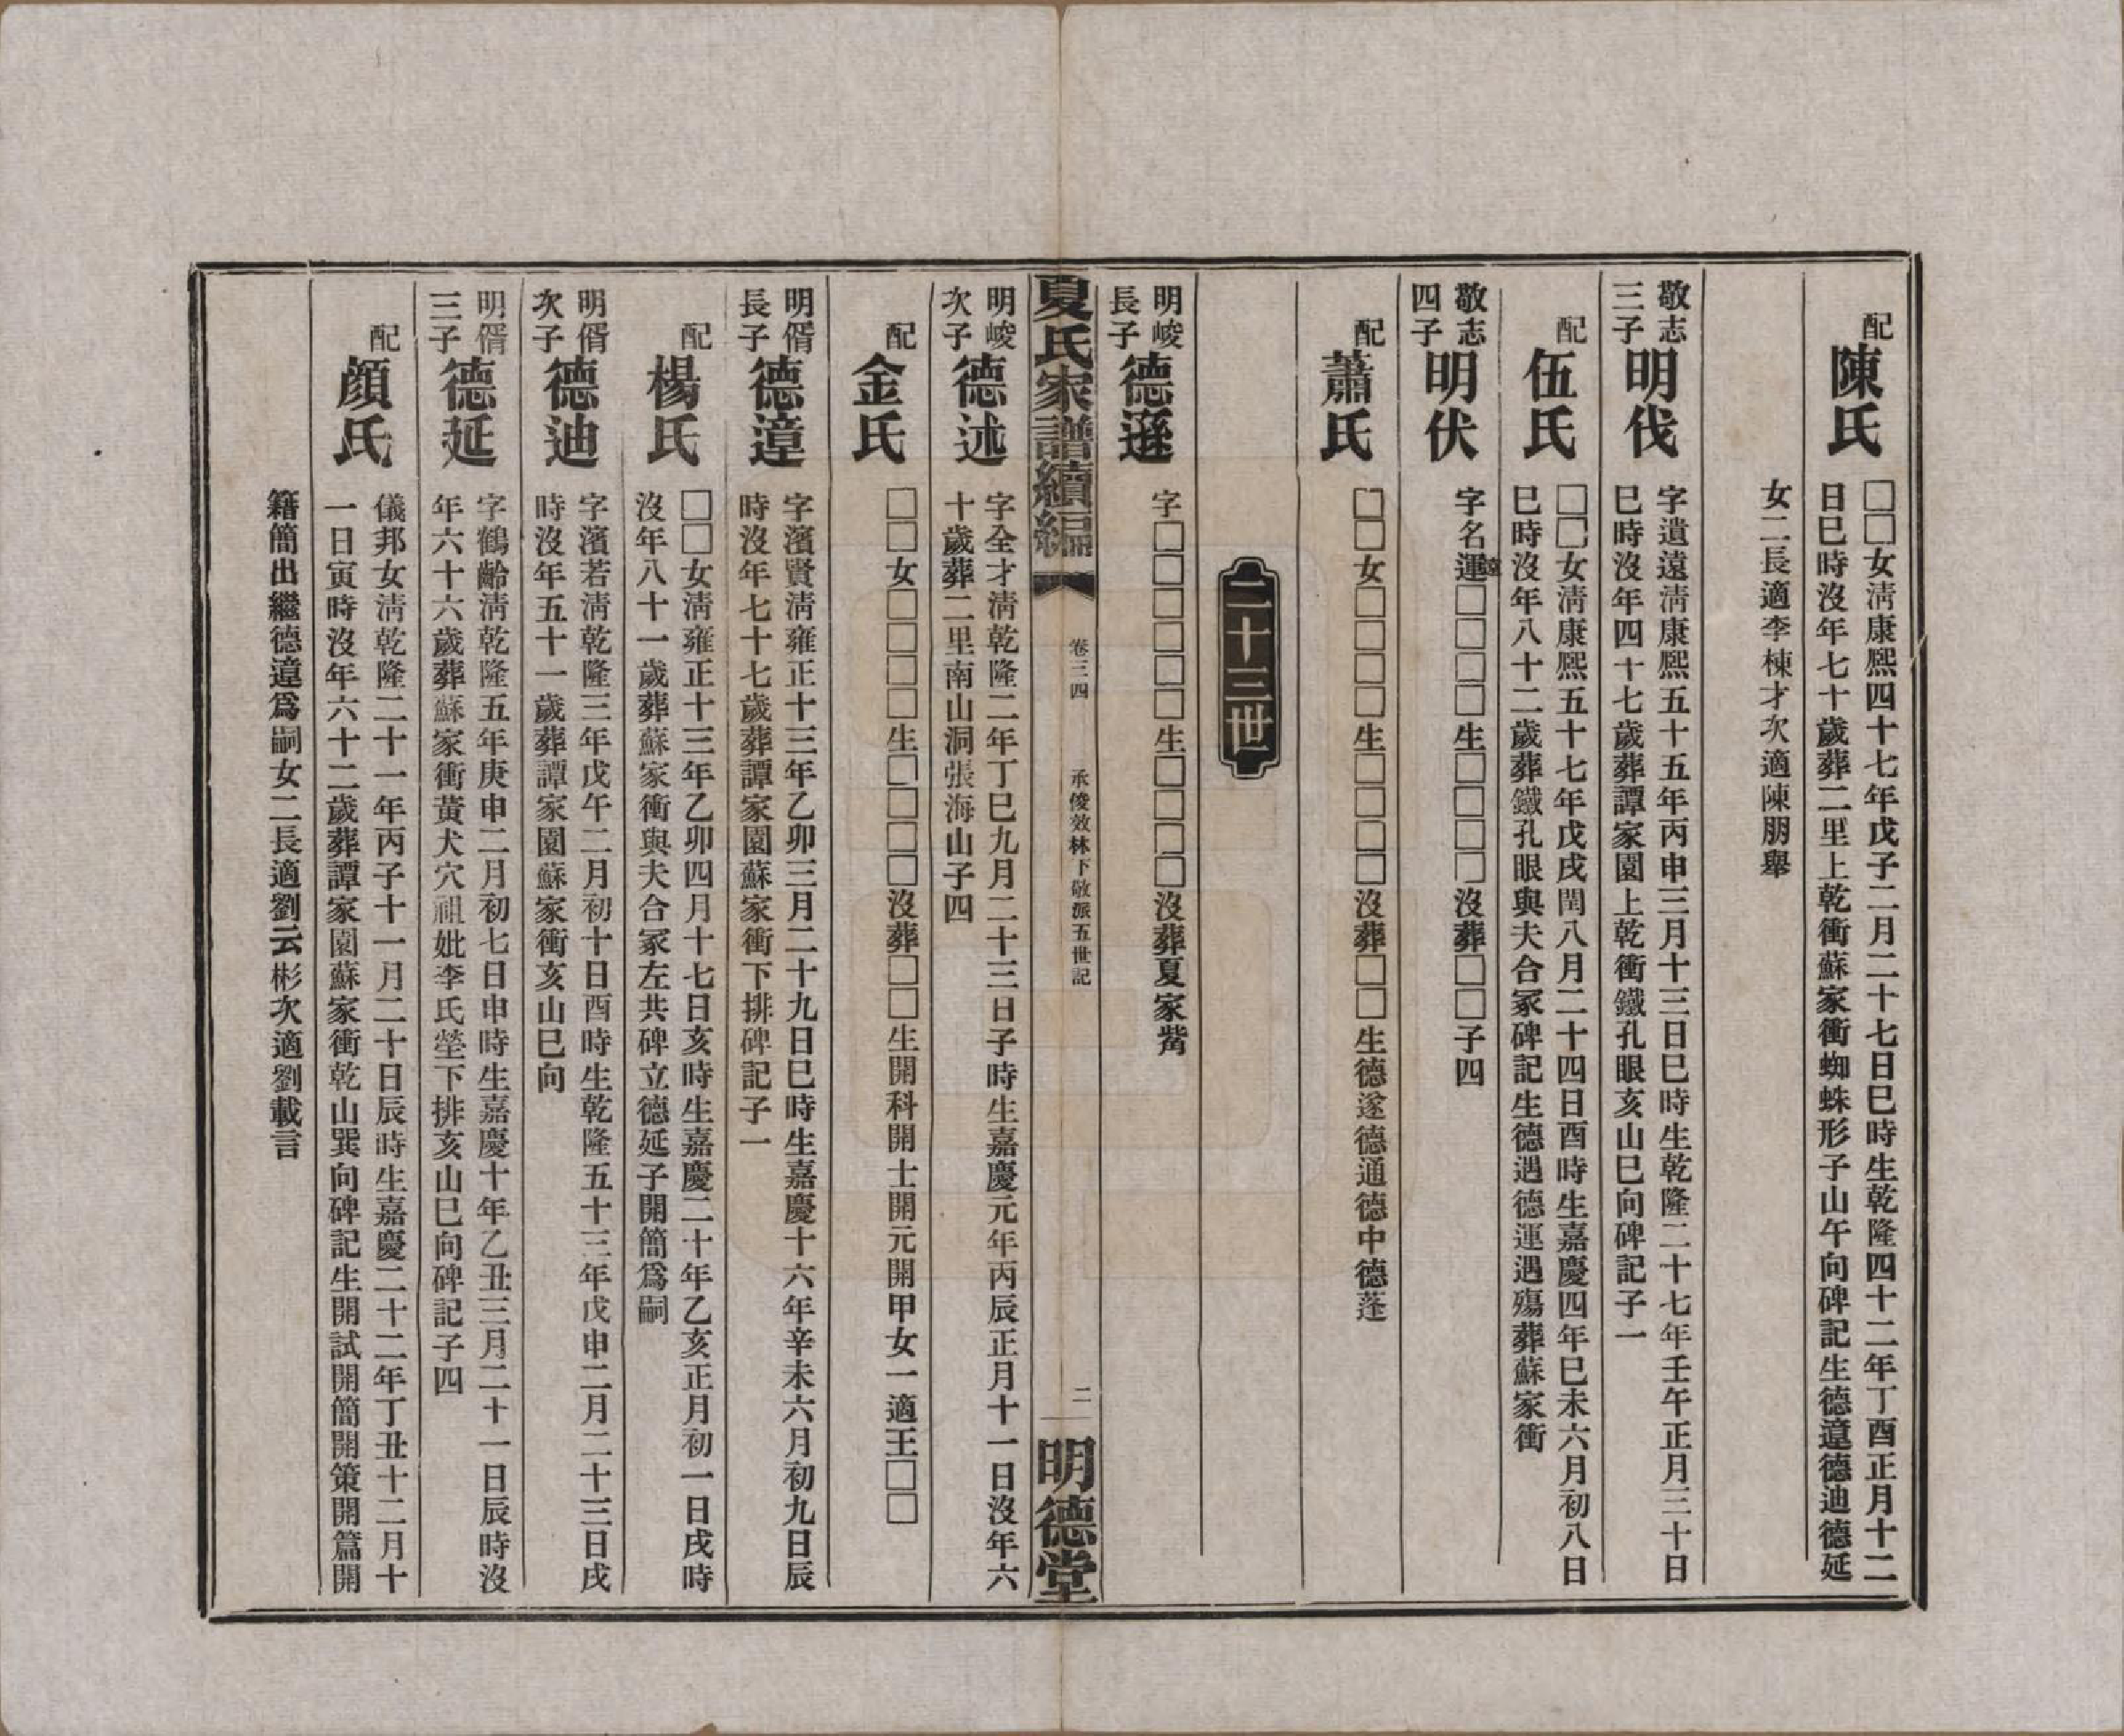 配
陳氏
□□女淸康熙四十七年戊子二月二十七日巳時生乾隆四十二年丁酉正月十二
日巳時沒年七十歲葬二里上乾衝蘇家衝蜘蛛形子山午向碑記生德漳德迪德延
女二長適李棟才次適陳朋舉
敬志
三子
明伐
字遺遠淸康熙五十五年丙申三月十三日巳時生乾隆二十七年壬午正月三十日
巳時沒年四十七歲葬譚家園上乾衝鐵孔眼亥山巳向碑記子一
配
伍氏
□□女淸康熙五十七年戊戌閏八月二十四日酉時生嘉慶四年巳未六月初八日
巳時沒年八十二歲葬鐵孔眼與夫合冢碑記生德遇德運遇殤葬蘇家衝
敬志
四子
明伏
字名運遠□□□□生□□□□沒葬□□子四
配
蕭氏
□□女□□□□生□□□□沒葬□□生德遂德通德中德蓬
二十三世
明峻
長子
德遜
字□□□□□□生□□□□沒葬夏家嘴
夏氏家譜續編
卷三四
承俊效林下敬派五世記
二
明德堂
明峻
次子
德述
字全才淸乾隆二年丁巳九月二十三日子時生嘉慶元年丙辰正月十一日沒年六
十歲葬二里南山洞張海山子四
配
金氏
□□女□□□□生□□□□沒葬□□生開科開士開元開甲女一適王□□
明傦
長子
德漳
字濱賢淸雍正十三年乙卯三月二十九日巳時生嘉慶十六年辛未六月初九日辰
時沒年七十七歲葬譚家園蘇家衝下排碑記子一
配
楊氏
□□女淸雍正十三年乙卯四月十七日亥時生嘉慶二十年乙亥正月初一日戌時
沒年八十一歲葬蘇家衝與夫合冢左共碑立德延子開簡爲嗣
明傦
次子
德迪
字濱若淸乾隆三年戊午二月初十日酉時生乾隆五十三年戊申二月二十三日戌
時沒年五十一歲葬譚家園蘇家衝亥山巳向
明傦
三子
德延
字鶴齡淸乾隆五年庚申二月初七日申時生嘉慶十年乙丑三月二十一日辰時沒
年六十六歲葬蘇家衝黃犬穴祖妣李氏塋下排亥山巳向碑記子四
配
顏氏
儀邦女淸乾隆二十一年丙子十一月二十日辰時生嘉慶二十二年丁丑十二月十
一日寅時沒年六十二歲葬譚家園蘇家衝乾山巽向碑記生開試開簡開策開篇開
籍簡出繼德漳爲嗣女二長適劉云彬次適劉載言